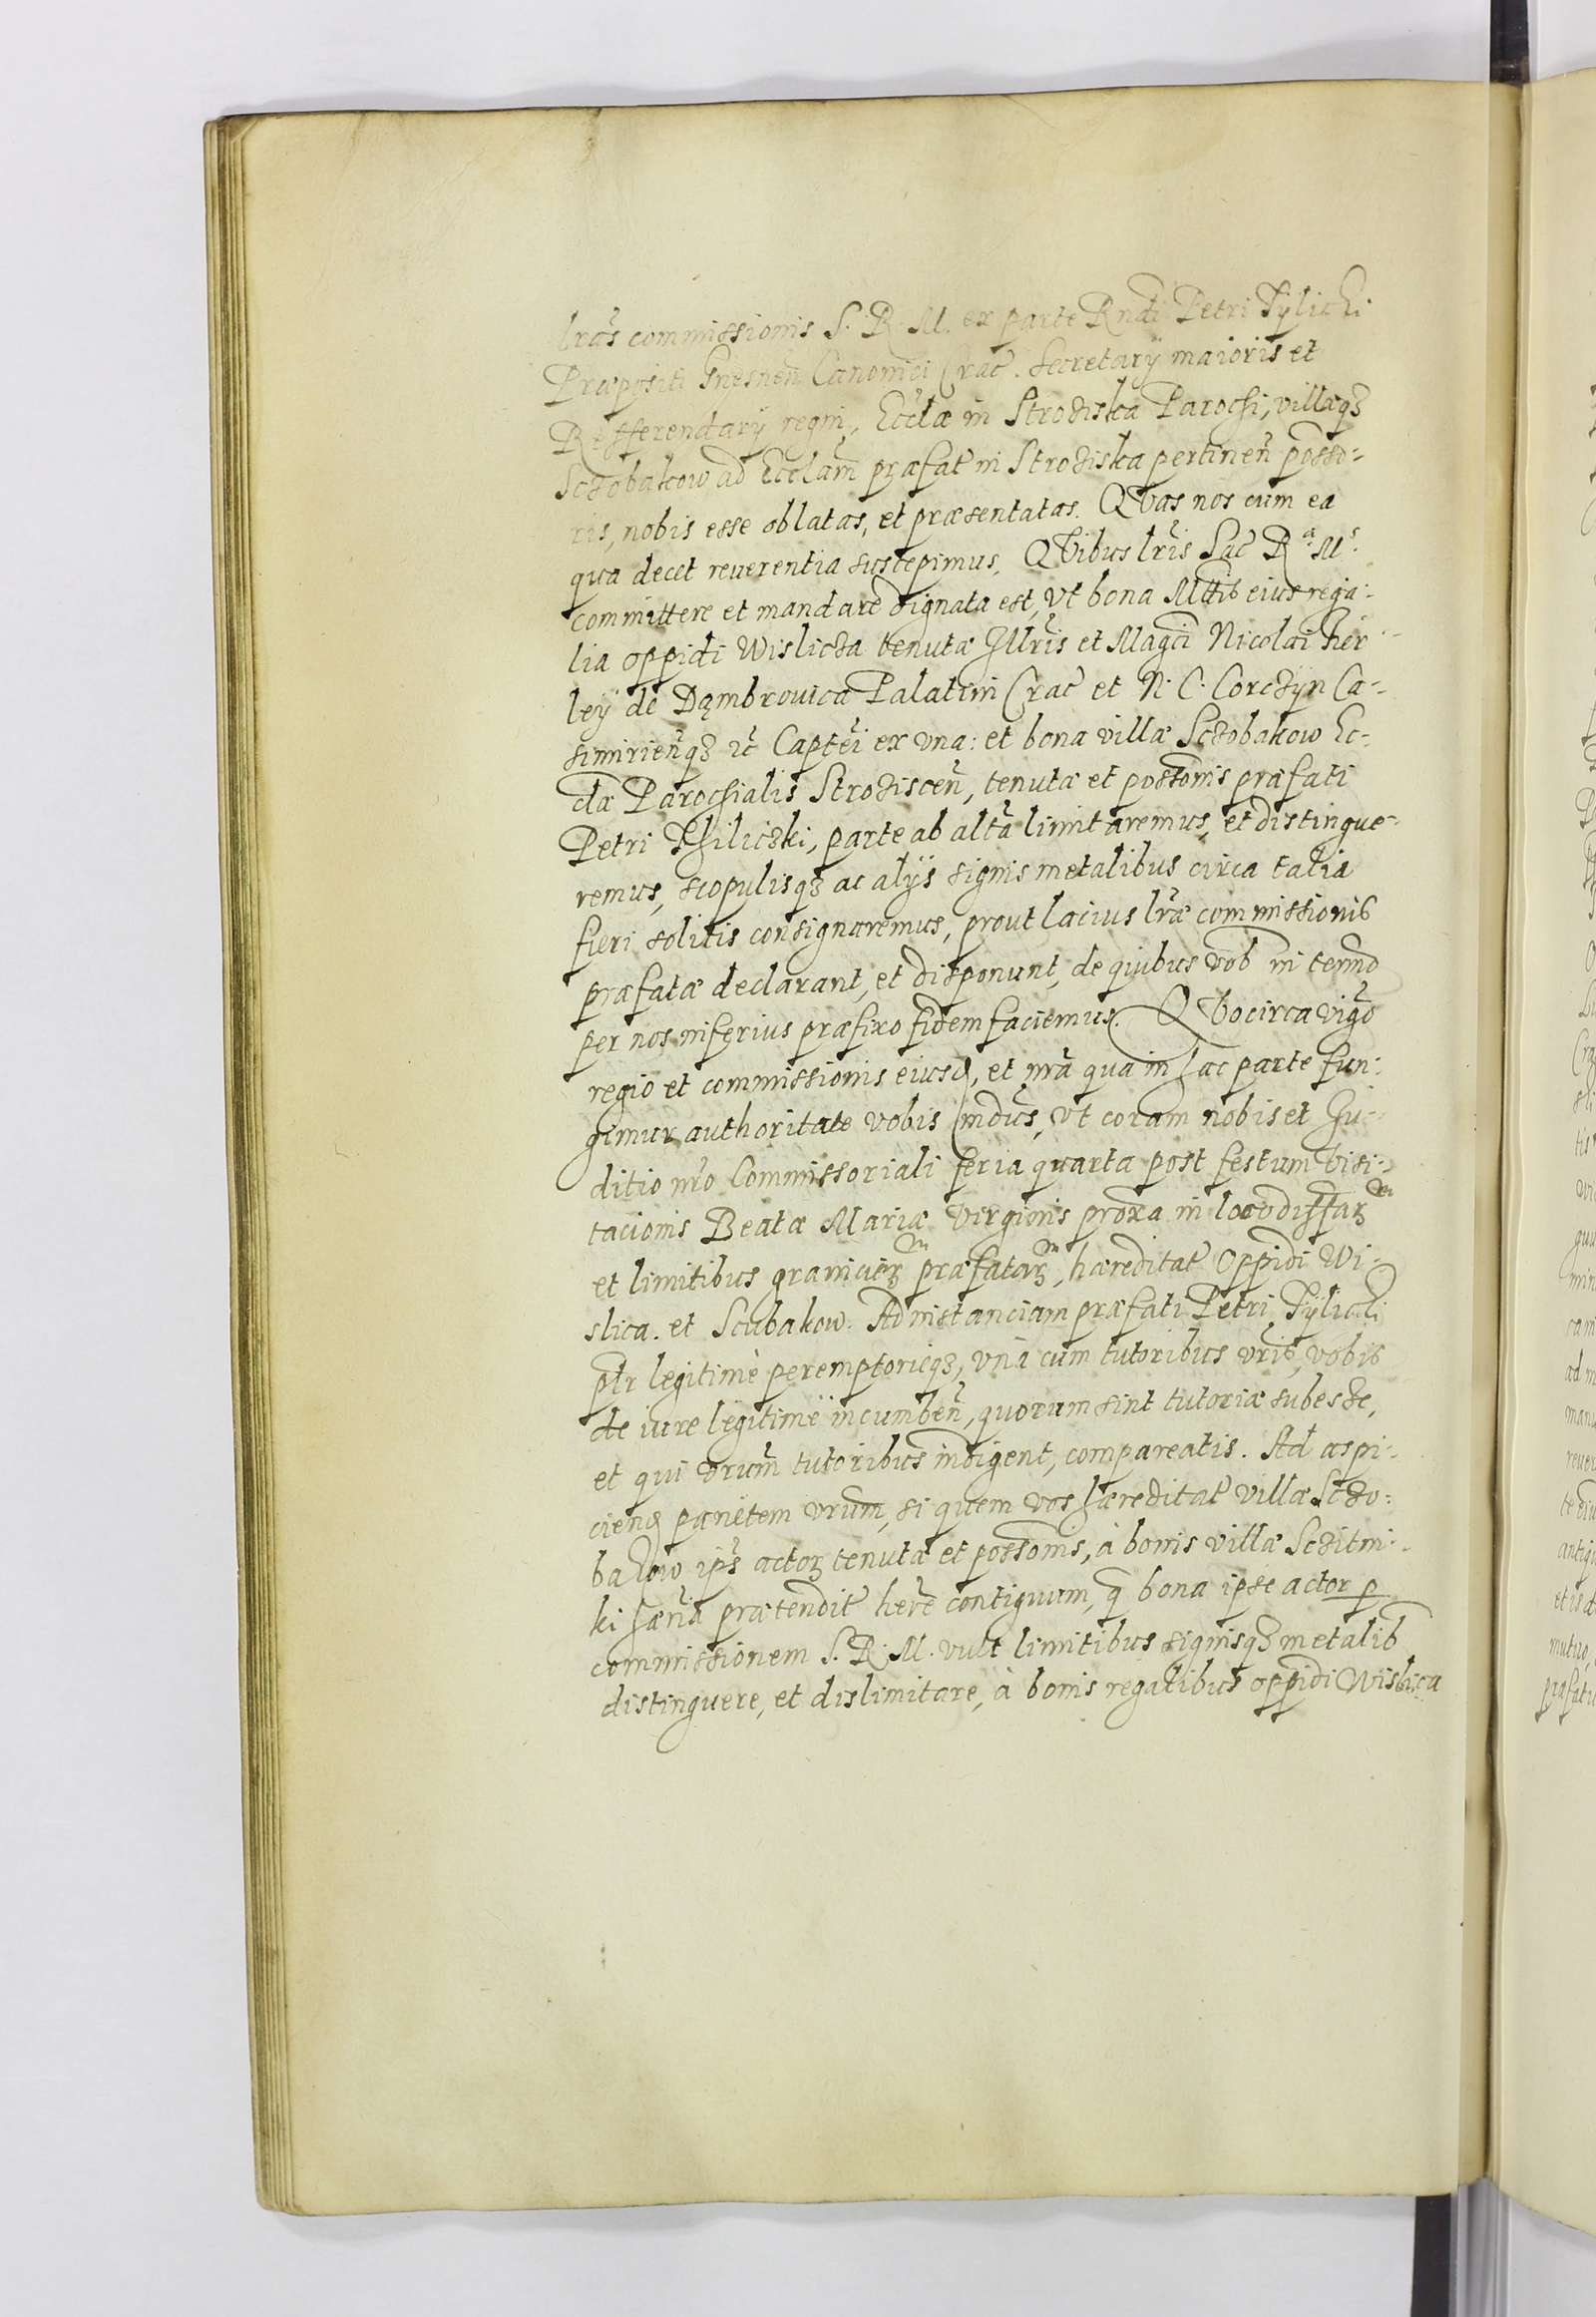 lrãs commissionis S. R. M. ex parte Rndi Petri Tylicki
Præpositi Gnesneñ Canonici Crac̃. Secretarij maioris et
Refferendarij regni, Ecclæ in Stroziska Parochi, villæqȝ
Sczobakow ad Ecclam̃ præfat̃ in Stroziska pertineñ posso-
ris, nobis esse oblatas, et præsentatas. Quas nos cum ea
qua decet reuerentia suscepimus, Quibus lris̃ Sac̃ R.a M.s
committere et mandare dignata est, vt bona Mttis eius rega-
lia oppidi Wislicza tenutæ Illris̃ et Magci Nicolai Fier-
leÿ de Dąmbrouica Palatini Crac̃ et N. C. Corczÿn Ca-
simirieñqȝ zc̃ Capitei ex vna: et bona villæ Sczobakow Ec-
clæ Parochialis Stroziscen̄, tenutæ et possonis præfati
Petri Thiliczki, parte ab altã limitaremus, et distingue-
remus, scopulisqȝ ac alijs signis metalibus circa talia
fieri solitis consignaremus, prout lacius lræ commissionis
præfatæ declarant, et disponunt, de quibus vob̃ in termo
per nos inferius præfixo fidem faciemus. Quocirca vigõ
regio et commissionis eiusd, et nrã qua in hac parte fun-
gimur authoritate vobis mdũs, vt coram nobis et Iu-
ditio nrõ Commissoriali feria quarta post festum Visi-
tacionis Beatæ Mariæ Virginis proxa in loco diffar̃
et limitibus granicier̃ præfatar̃, hæreditat̃ Oppidi Wi-
slica. et Scubakow. Ad instanciam præfati Petri Tylicki
ptr legitimè peremptorieqȝ, vnà cum tutoribus vris̃, vobis
de iure legitimè incumbeñ, quorum sint tutoriæ subesse,
et qui vrum̃ tutoribus indigent, compareatis. Ad aspi-
ciend parietem vrum̃, si quem vos hæreditat̃ villæ Sczo-
bakow ips̃ actor̃ tenutæ et possonis, à bonis villæ Sczitni-
ki prætendit̃ here contiguum, q̃ bona ipse actor p
commissionem S. R. M. vult limitibus signisqȝ metalib̃
distinguere, et dislimitare, à bonis regalibus oppidi Wislica